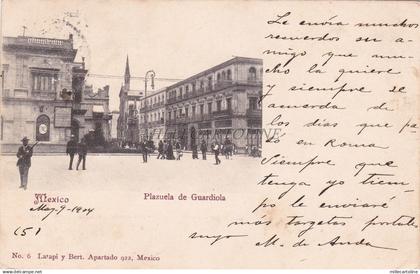 Le envía muchos
recuerdos su a-
migo que mu-
cho la quiere
y siempre se
acuerda de
los días que pa-
só en Roma
Siempre que
tenga yo tiem-
po le enviaré
más targetas postales
suyo
M. de Anda
Mexico
Plazuela de Guardiola
May-9-1904
(5)
No. 6 Latapi y Bert. Apartado 922, Mexico